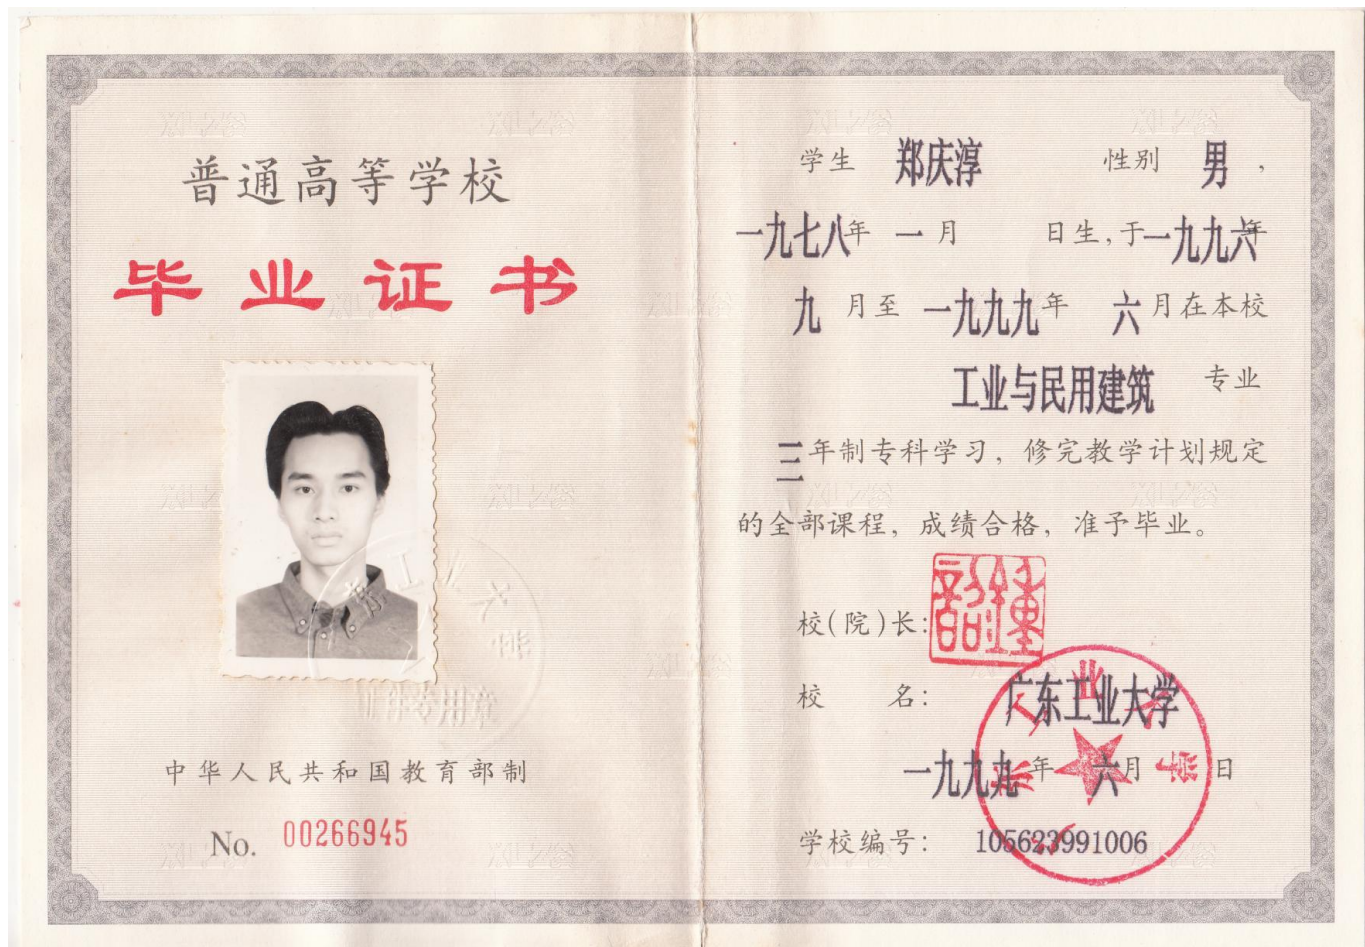 普通高等学校
毕业证书
中华人民共和国教育部制
No. 00266945
学生 郑庆淳 性别 男，
一九七八年 一 月 日生，于一九九六年
九 月至 一九九九年 六 月在本校
工业与民用建筑 专业
三年制专科学习，修完教学计划规定
的全部课程，成绩合格，准予毕业。
校(院)长：
校 名：广东工业大学
一九九九年 六月 日
学校编号：105623991006